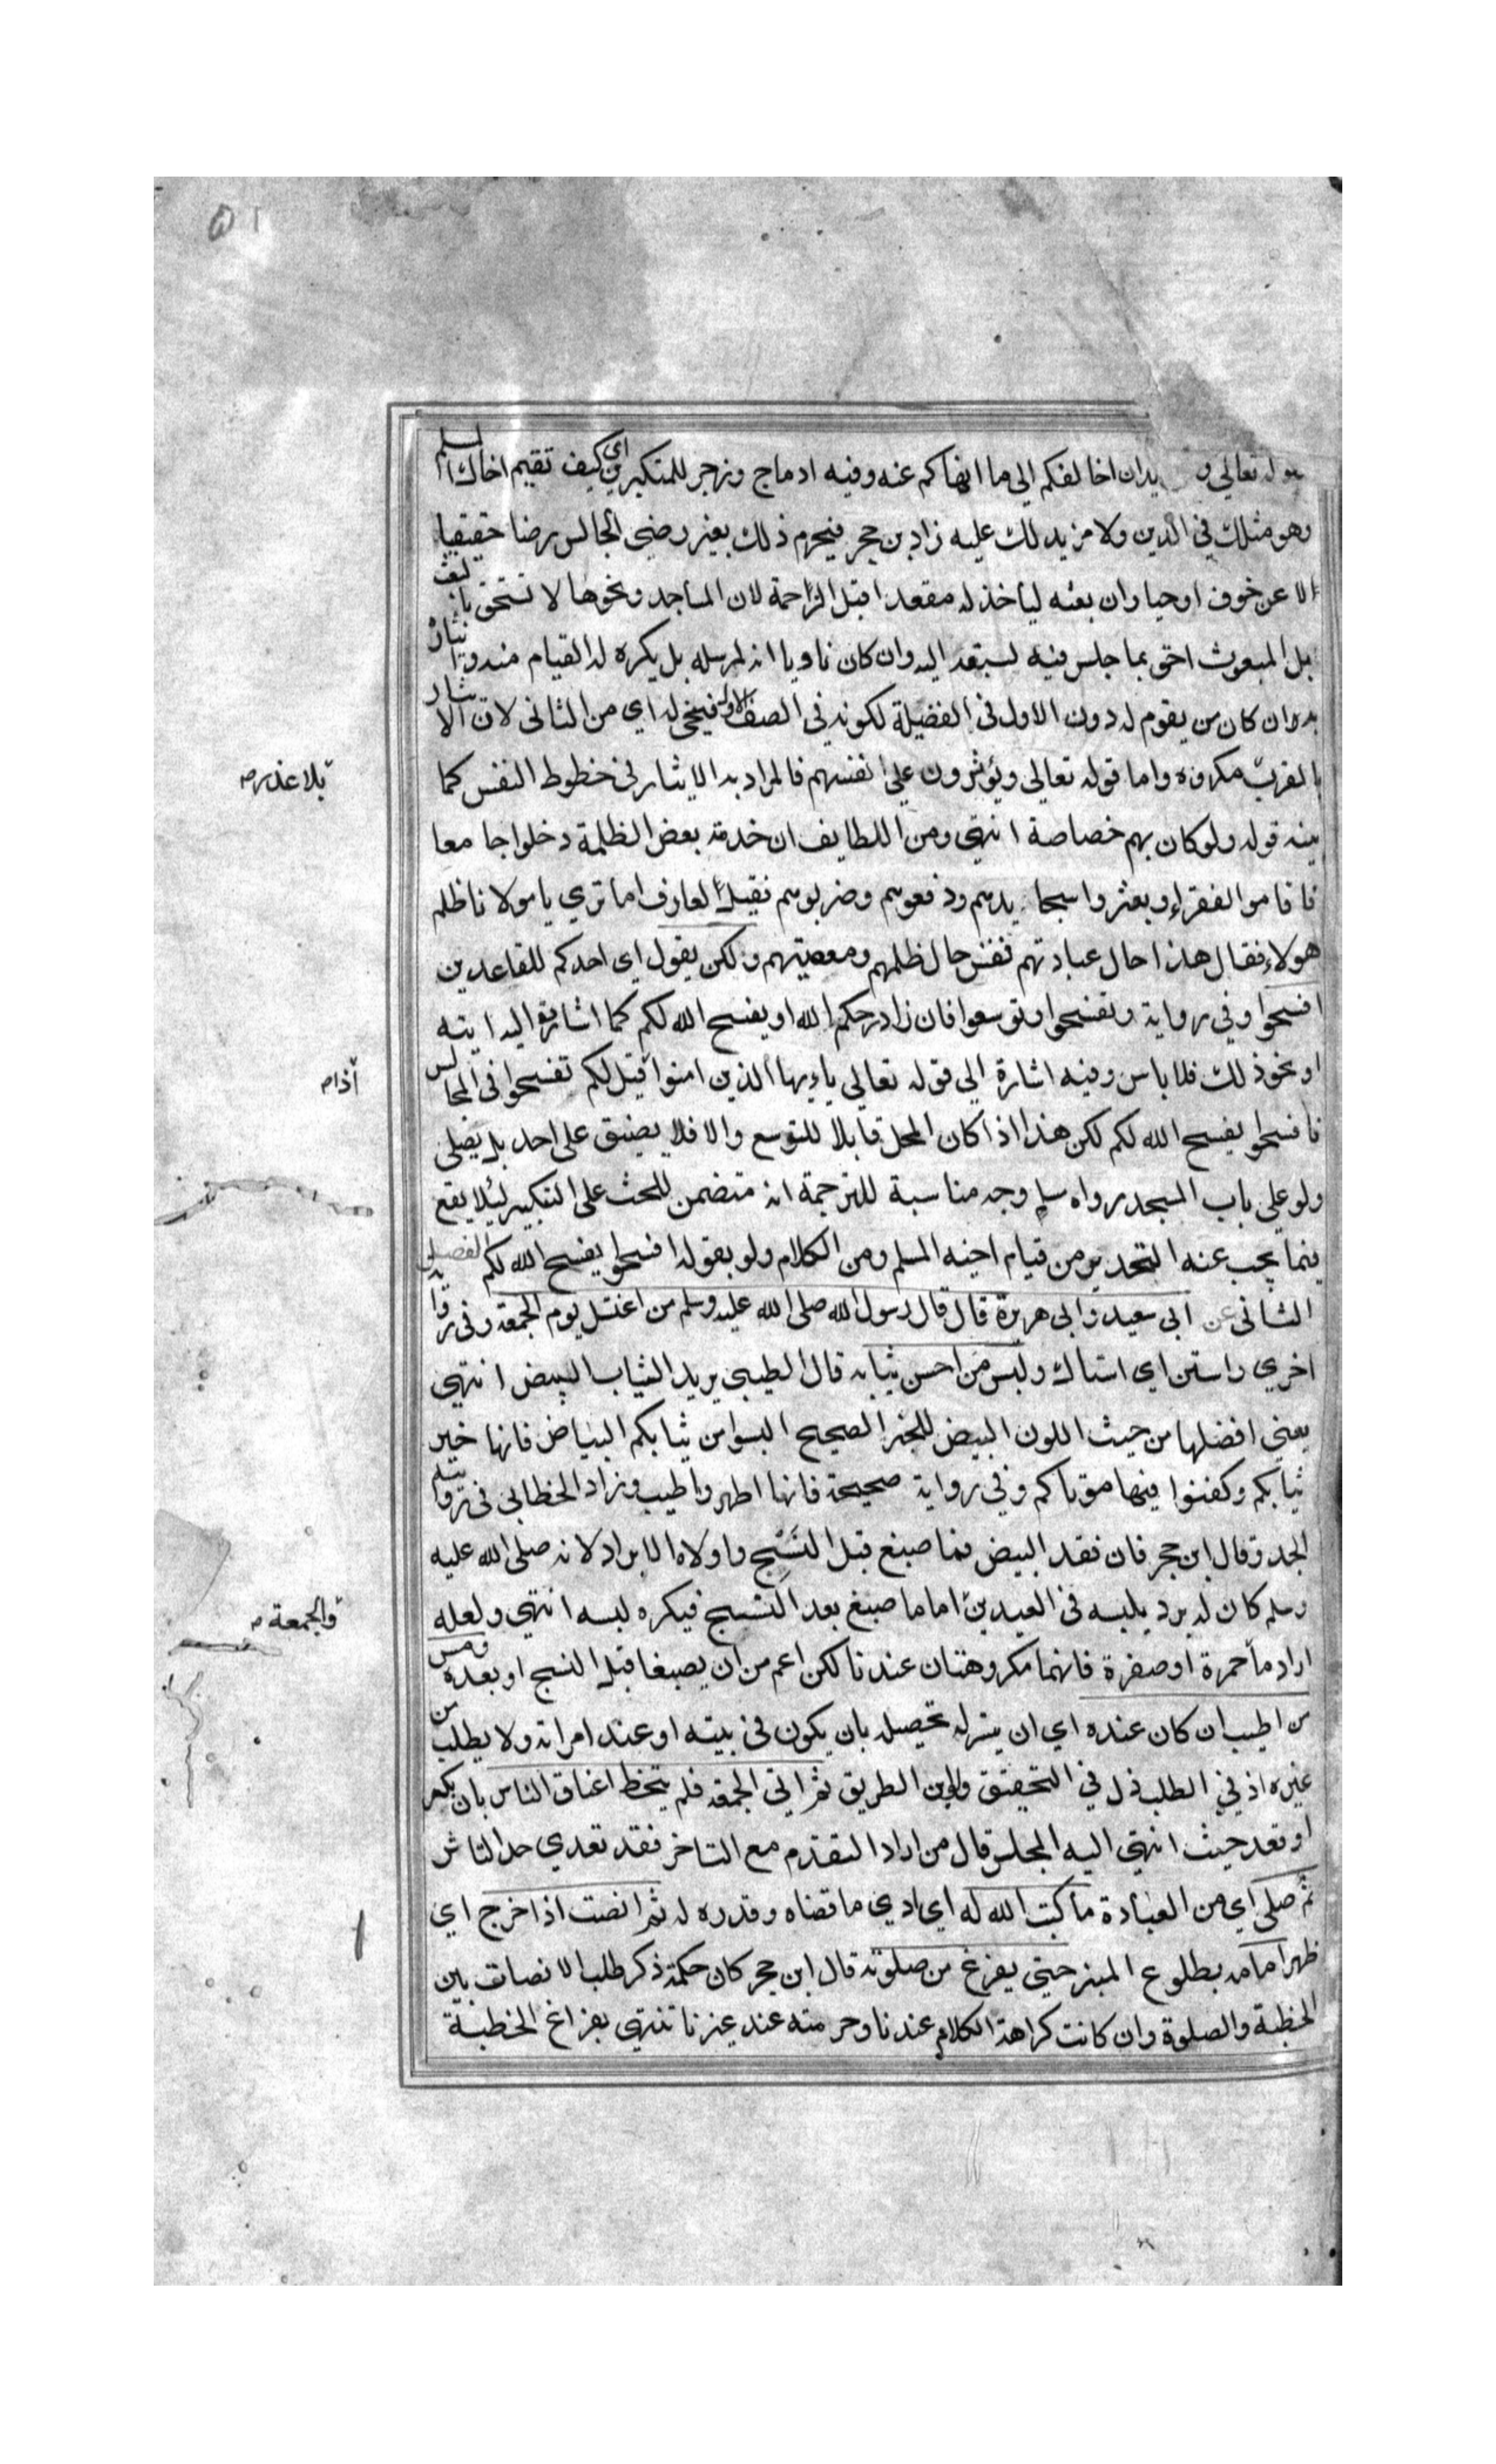 ٥١
تعالى و يدان اخالفكم الى ما انهاكم عنه وفيه ادماج وزجر للمتكبرين اى كيف تقيم اخاك المسلم
وهو مثلك في الدين ولا مزيد لك عليه زاد بن حجر فيحرم ذلك بغير رضى الجالس رضا حقيقيا
الا عن خوف اوحيا وان بعثه ليأخذ له مقعدا قبل الزاحمة لان المساجد ونحوها لا تستحق بالبعث
بل المبعوث احق بما جلس فيه لسبقه اليه وان كان ناويا انه لمرسله بل يكره له القيام منه وايثاره
به وان كان من يقوم له دون الاول في الفضيلة لكونه في الصف الاول فينحى له اي من الثانى لان الايثار
بالقرب مكروه واما قوله تعالى ويؤثرون على انفسهم فالمراد به الايثار في خطوظ النفس كما
بينه قوله ولو كان بهم خصاصة انتهى ومن اللطايف ان خدمة بعض الظلمة دخلوا جامعا
فاقاموا الفقراء وبعثروا سجاجيدهم ودفعوهم وضربوهم فقيل لعارف اما تري يا مولانا ظلم
هولاء فقال هذا حال عبادتهم فقس حال ظلمهم ومعصيتهم ولكن يقول اى احدكم للقاعدين
افسحوا وفي رواية وتفسحوا وتوسعوا فان زاد رحمكم الله او يفسح الله لكم كما اشارة اليه ايته
او نحو ذلك فلا باس وفيه اشارة الي قوله تعالي يا يها الذين امنوا قيل لكم تفسحوا في المجالس
فافسحوا يفسح الله لكم لكن هذا اذا كان المحل قابلا للتوسع والا فلا يضيق على احد بل يصلى
ولو على باب المسجد رواه مسلم وجه مناسبة للترجمة انه متضمن للحث على التبكير ليلا يقع
فيما يجب عنه التحذير من قيام اخيه المسلم ومن الكلام ولو بقوله افسحوا يفسح الله لكم الفصل
الثانى عن ابى سعيد وابى هريرة قال قال رسول الله صلى الله عليه وسلم من اغتسل يوم الجمعة وفى رواية
اخري واستن اي استاك ولبس من احسن ثيابه قال الطيبي يريد الثياب البيض انتهى
يعني افضلها من حيث اللون البيض للخبر الصحيح البسوا من ثيابكم البياض فانها خير
ثيابكم وكفنوا فيها موتاكم وفي رواية صحيحة فانها اطهر واطيب وزاد الخطابي في
الجد وقال ابن حجر فان فقد البيض فما صبغ قبل النسج واولاه البراد لانه صلى الله عليه
وسلم كان له برد يلبسه في العيدين اما ما صبغ بعد النسج فيكره لبسه انتهى ولعله
اراد ما حمرة او صفرة فانهما مكروهتان عندنا لكن اعم من ان يصبغا قبل النسج او بعده ومس
من اطيب ان كان عنده اي ان يتيسر له تحصيله بان يكون في بيته او عند امراته ولا يطلب من
غيره اذ في الطلب ذل في التحقيق ولابن الطريق ثم اتى الجمعة فلم يتخط اعناق الناس بان بكر
او قعد حيث انتهى اليه المجلس قال من اراد التقدم مع التاخر فقد تعدي حد الناس
ثم صلى اي من العبادة ما كتب الله له اي ادي ما قضاه وقدره له ثم انصت اذا خرج اي
ظهر امامه بطلوع المنبر حتى يفرغ من صلوته قال ابن حجر كان حكمة ذكر طلب الانصات بين
الخطبة والصلوة وان كانت كراهة الكلام عندنا وحرمته عند غيرنا تنتهي بفراغ الخطبة
بلا عذر م
اذا م
والجمعة م